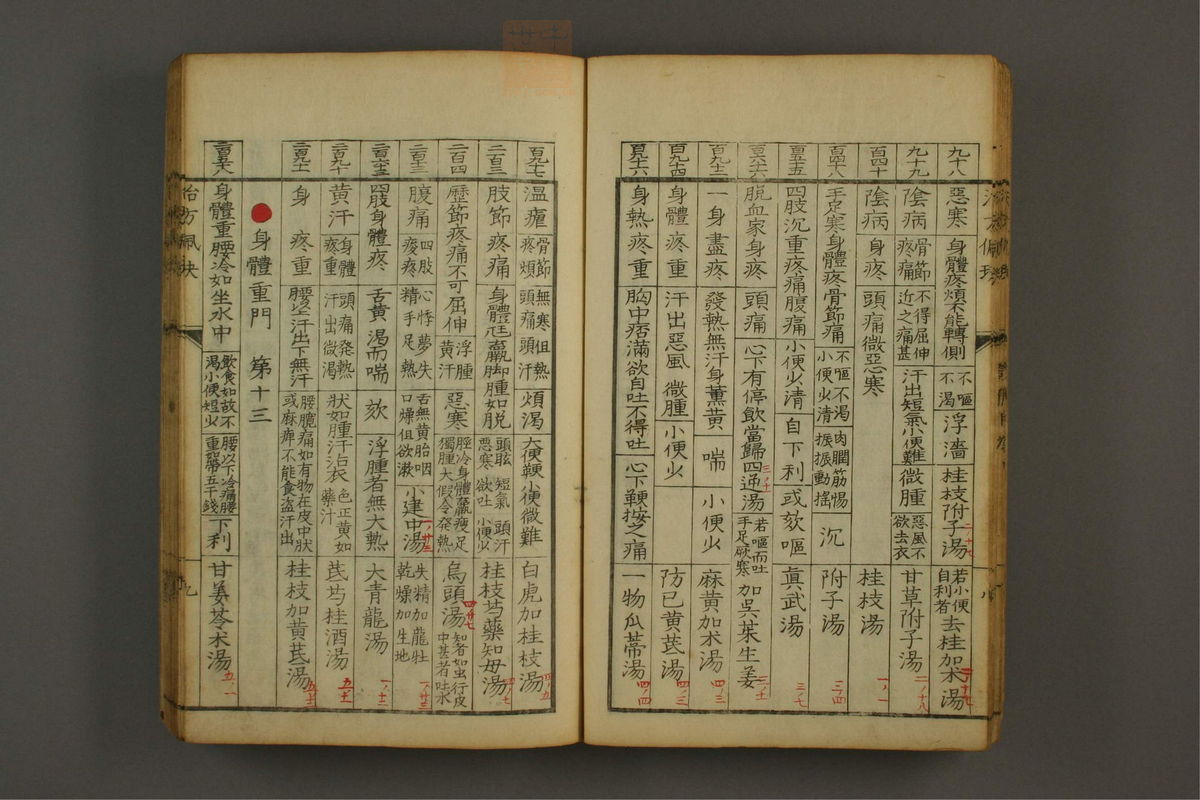 九十八 惡寒 身體疼煩不能轉側 不嘔不渇 浮濇 桂枝附子湯 若小便自利者 去桂加朮湯
九十九 陰病 骨節疼痛 不得屈伸近之痛甚 汗出短氣小便難 微腫 惡風不欲去衣 甘草附子湯
百四十 陰病 身疼 頭痛微惡寒 桂枝湯
百四十八 手足寒身體疼骨節痛 不嘔不渇小便少清 肉膶筋惕振振動搖 沉 附子湯
四肢沉重疼痛腹痛 小便少清 自下利 或欬嘔 眞武湯
脫血家身疼 頭痛 心下有停飲當歸四逆湯 若嘔而吐手足厥寒 加吳茱生姜
一身盡疼 發熱無汗身薰黄 喘 小便少 麻黄加朮湯
百九十四 身體疼重 汗出惡風 微腫 小便少 防已黄芪湯
身熱疼重 胸中痞滿欲自吐不得吐 心下鞕按之痛 一物瓜蒂湯
百九十七 温瘧 骨節疼煩 無寒但熱頭痛頭汗 煩渇 大便鞕小便微難 白虎加桂枝湯
二百三 肢節疼痛 身體尪羸脚腫如脱 頭眩短氣惡寒欲吐 頭汗小便少 桂枝芍藥知母湯
二百四 歷節疼痛不可屈伸 浮腫黄汗 惡寒 脛冷身體羸瘦足獨腫大假令發熱 烏頭湯 知者如虫行皮中甚者吐水
腹痛 四肢疼 心悸夢失精手足熱 舌無黄胎咽口燥但欲漱 小建中湯 失精加龍牡乾燥加生地
四肢身體疼 舌黄渇而喘 欬 浮腫者無大熱 大青龍湯
二百九十 黄汗 身體疼重 頭痛發熱汗出微渇 狀如腫汗沾衣 色正黄如藥汁 芪芍桂酒湯
二百九十一 身疼重 腰上汗出下無汗 腰髖痛如有物在皮中狀或麻痺不能食盗汗出 桂枝加黄芪湯
身體重門 第十三
身體重腰冷如坐水中 飲食如故不渇小便短少 腰以下冷痛腰重如帶五千錢 下利 甘姜苓朮湯
治方佩玦
九